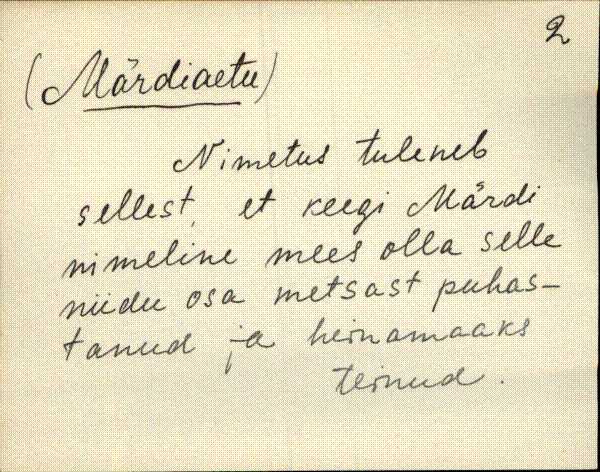 2
(Märdiaetu)
Nimetus tuleneb
sellest, et keegi Märdi
nimeline mees olla selle
niidu osa metsast puhas-
tanud ja heinamaaks
teinud.